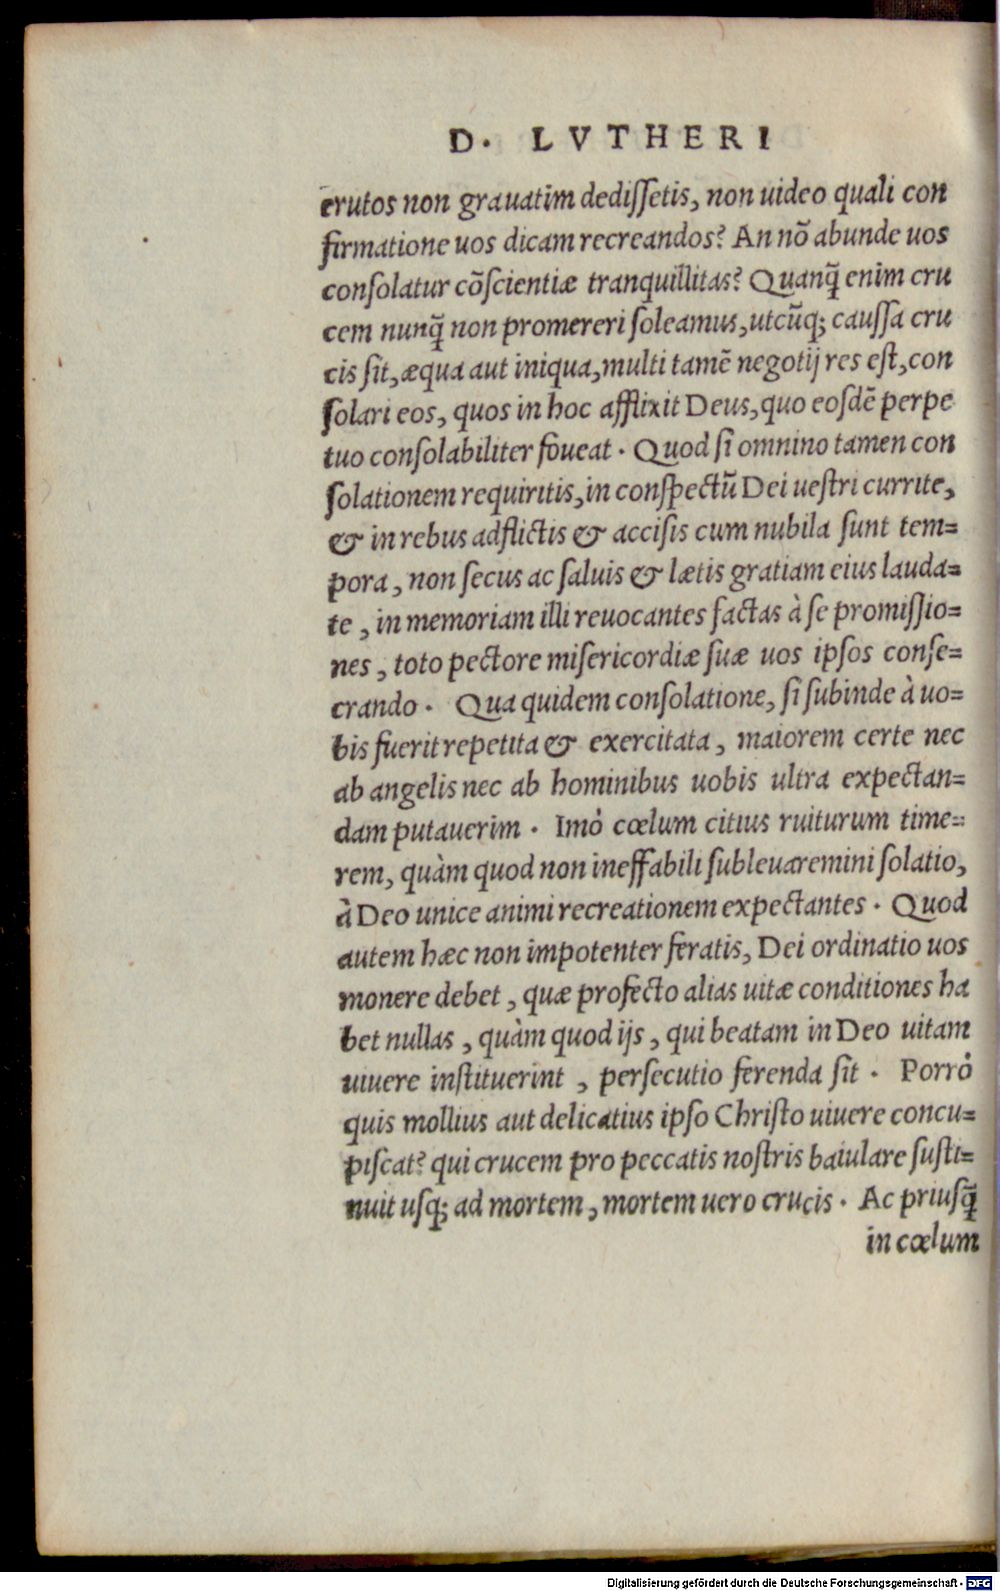 D. LVTHERI
erutos non grauatim dedissetis, non uideo quali con
firmatione uos dicam recreandos? An nõ abunde uos
consolatur cõscientiæ tranquillitas? Quanq̃ enim cru
cem nunq̃ non promereri soleamus, utcũq; caussa cru
cis sit, æqua aut iniqua, multi tamẽ negotij res est, con
solari eos, quos in hoc afflixit Deus, quo eosdẽ perpe
tuo consolabiliter foueat. Quod si omnino tamen con
solationem requiritis, in conspectũ Dei uestri currite,
& in rebus adflictis & accisis cum nubila sunt tem=
pora, non secus ac saluis & lætis gratiam eius lauda=
te, in memoriam illi reuocantes factas à se promissio=
nes, toto pectore misericordiæ suæ uos ipsos conse=
crando. Qua quidem consolatione, si subinde à uo=
bis fuerit repetita & exercitata, maiorem certe nec
ab angelis nec ab hominibus uobis ultra expectan=
dam putauerim. Imò cœlum citius ruiturum time=
rem, quàm quod non ineffabili subleuaremini solatio,
à Deo unice animi recreationem expectantes. Quod
autem hæc non impotenter feratis, Dei ordinatio uos
monere debet, quæ profecto alias uitæ conditiones ha
bet nullas, quàm quod ijs, qui beatam in Deo uitam
uiuere instituerint, persecutio ferenda sit. Porrò
quis mollius aut delicatius ipso Christo uiuere concu=
piscat? qui crucem pro peccatis nostris baiulare susti=
nuit usq; ad mortem, mortem uero crucis. Ac priusq̃
in cœlum
Digitalisierung gefördert durch die Deutsche Forschungsgemeinschaft - DFG